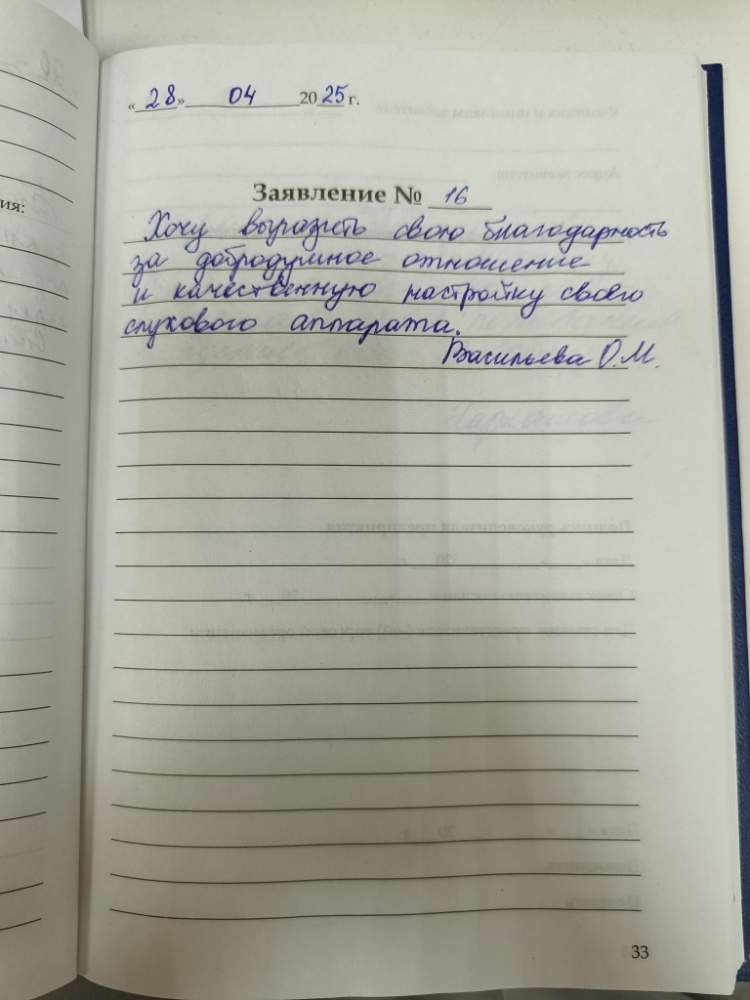 ия:
«28» 04 2025 г.
Заявление № 16
Хочу выразить свою благодарность
за добродушное отношение
и качественную настройку своего
слухового аппарата.
Васильева О.М.
33